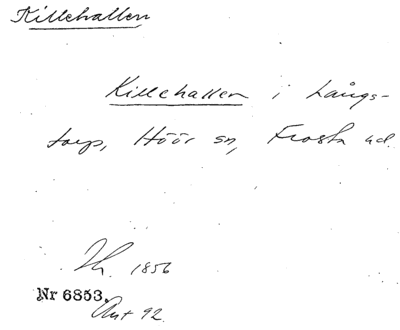 Killehallen
Killehallen i Långs-
torp, Höör sn, Frosta hd.
1856
Nr 6853.
Ant 92.